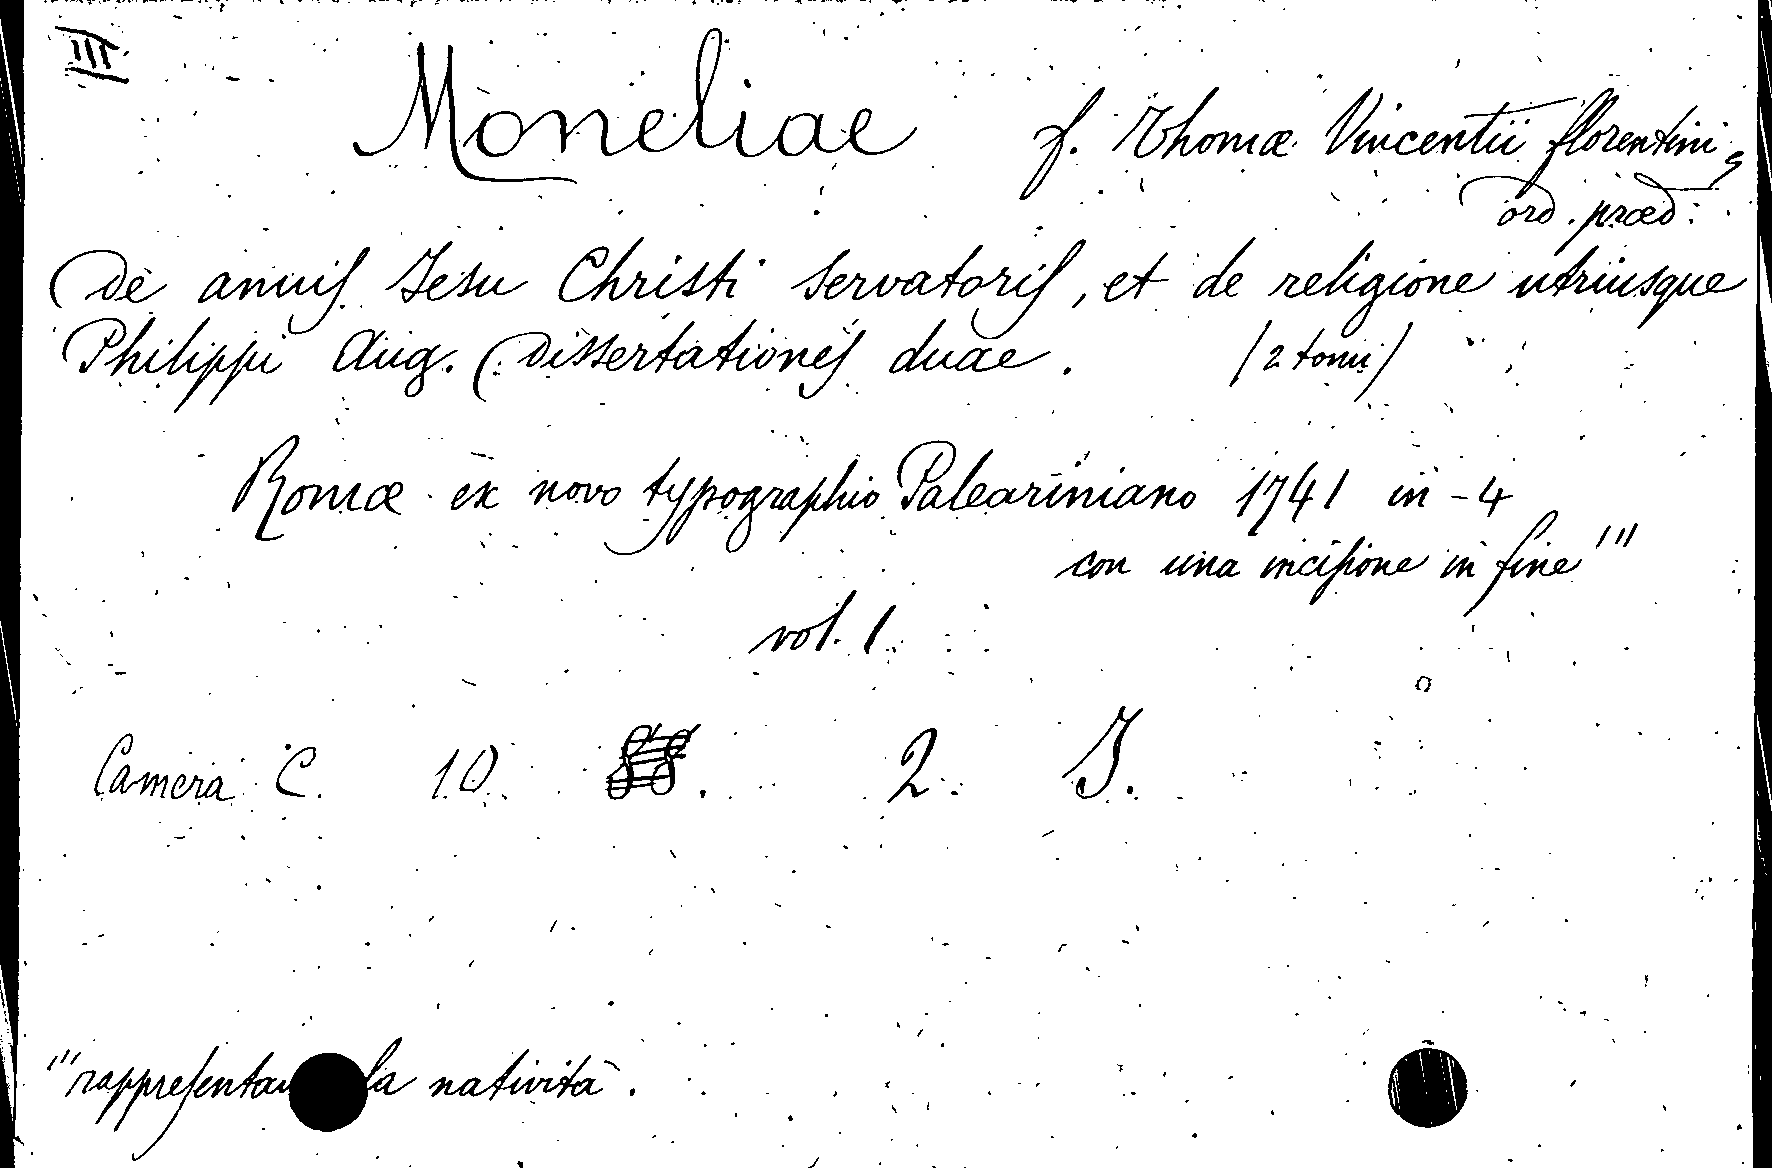 III
Moneliae f. Thomæ Vincentii florentini,
ord. præd:
De annis Jesu Christi Servatoris, et de religione utriusque
Philippi Aug. Dissertationes duae. (2 tomi)
Romæ ex novo typographio Paleariniano 1741 in-4
con una incisione in fine'''
vol. 1
Camera C. 10. 2. I.
'''rappresentan la natività.